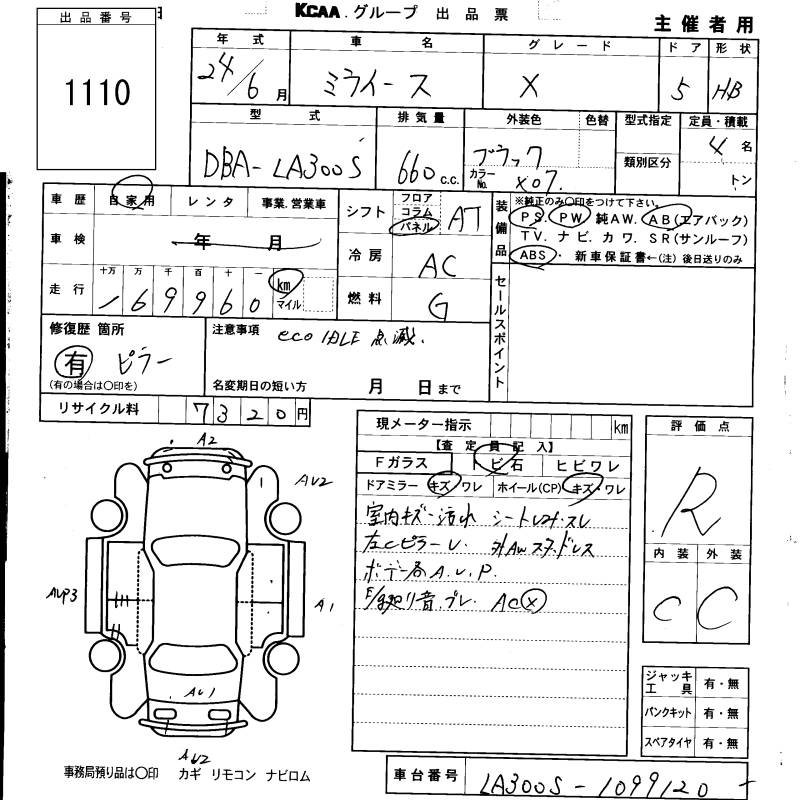 KCAA.グループ 出品票
主催者用
出品番号
1110
年式 車名 グレード ドア 形状
24/6月 ミライース X 5 HB
型式 排気量 外装色 色替 型式指定 定員・積載
DBA-LA300S 660c.c. ブラック 4名
カラーNo. X07. 類別区分 トン
車歴 自家用 レンタ 事業.営業車
車検 年 月
十万 万 千 百 十 一
走行 169960 km マイル
シフト フロア コラム パネル AT
冷房 AC
燃料 G
装備品
※純正のみ○印をつけて下さい。
PS. PW 純AW. AB(エアバック)
TV. ナビ. カワ. SR(サンルーフ)
ABS ・ 新車保証書←(注) 後日送りのみ
セールスポイント
修復歴 箇所
有 ピラー
(有の場合は○印を)
注意事項
eco IDLE 点滅.
名変期日の短い方 月 日まで
リサイクル料 7320円
現メーター指示 km
【査定員記入】
Fガラス トビ石 ヒビワレ
ドアミラー キズ・ワレ ホイール(CP) キズ・ワレ
室内キズ-汚れ シート スレ
左Cピラーレ. 外AWスタッドレス
ボデー各A.U.P.
音.ブレ. AC X
評価点
R
内装 外装
C C
A2
AU2
AUP3
A1
AU1
AU2
ジャッキ工具 有・無
パンクキット 有・無
スペアタイヤ 有・無
事務局預り品は○印 カギ リモコン ナビロム
車台番号 LA300S-1099120